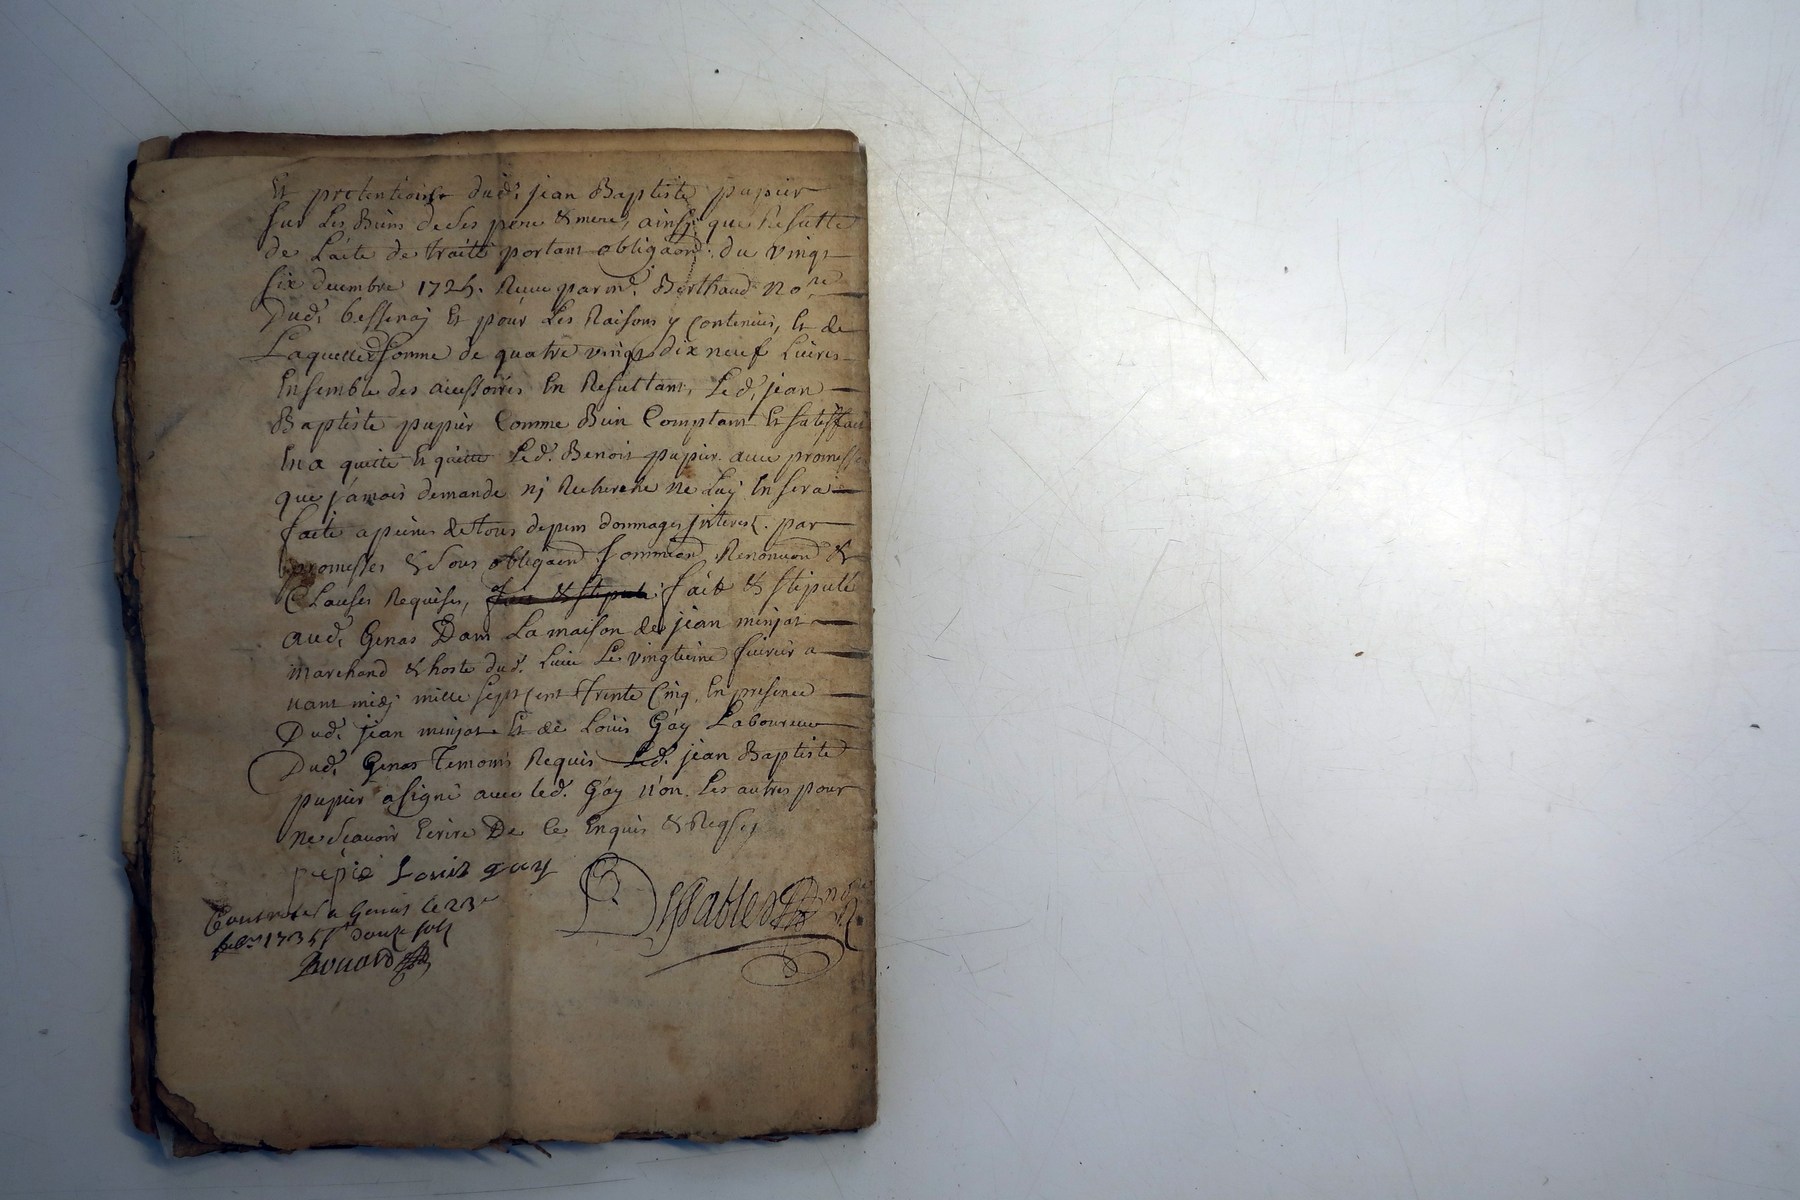 Et pretentions dud. jean Baptiste pupier
sur Les Biens de ses pere & mere, ainsy que Resulte
de L'acte de traitte portant obligaon. du vingt
six decembre 1725. Receu par m.e Berthaud no.re
Dud. bessenay Et pour Les Raisons y Contenües, Et de
Laquelle somme de quatre vingt dix neuf Livres
Ensemble des accessoires En Resultant, Led. jean
Baptiste pupier Comme Bien Comptant Et satisfait
En a quitté Et quitte Led. Benoit pupier avec promesse
que jamais demande ny Recherche ne Luy En sera
faite a peines de tous depens dommages interest. par
promesses & sous obligaond soumiond Renonciaond &
Clauses Requises, fait & stipulé fait & stipulé
aud. Genas Dans La maison de jean minjat
marchand & hoste dud. Lieu Le vingtieme fevrier a
uant midy mille sept cent trente Cinq En presence
Dud. jean minjat Et de Loüis Gay Laboureur
Dud. Genas temoins Requis Led. jean Baptiste
pupier a signé avec led. Gay non Les autres pour
ne scavoir Ecrire De Ce Enquis & Reqis
pupié Louis gay
Controlé a Genas le 23e
feb.er 1735 R douze sols
Bouard